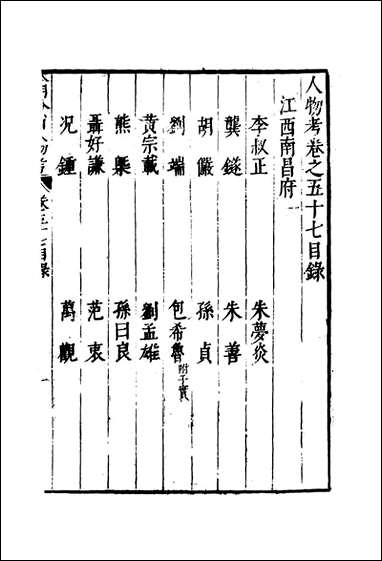 人物考卷之五十七目錄
江西南昌府一
李叔正 朱夢炎
龔鐩 朱善
胡儼 孫貞
劉端 包希魯附子實
黃宗載 劉孟雄
熊㮣 孫曰良
聶好謙 范衷
況鍾 萬觀
人物考 卷五十七目錄 一